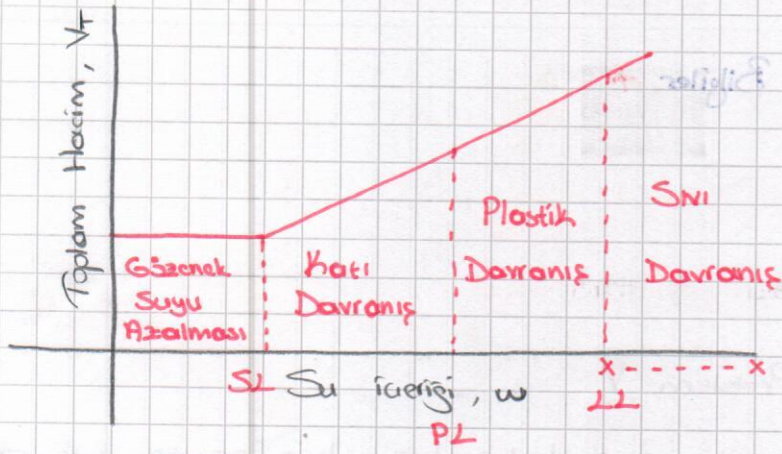 Toplam Hacim, V_T
Bilgiler
Gözenek
Suyu
Azalması
Katı
Davranış
Plastik
Davranış
Sıvı
Davranış
SL
Su içeriği, w
PL
LL